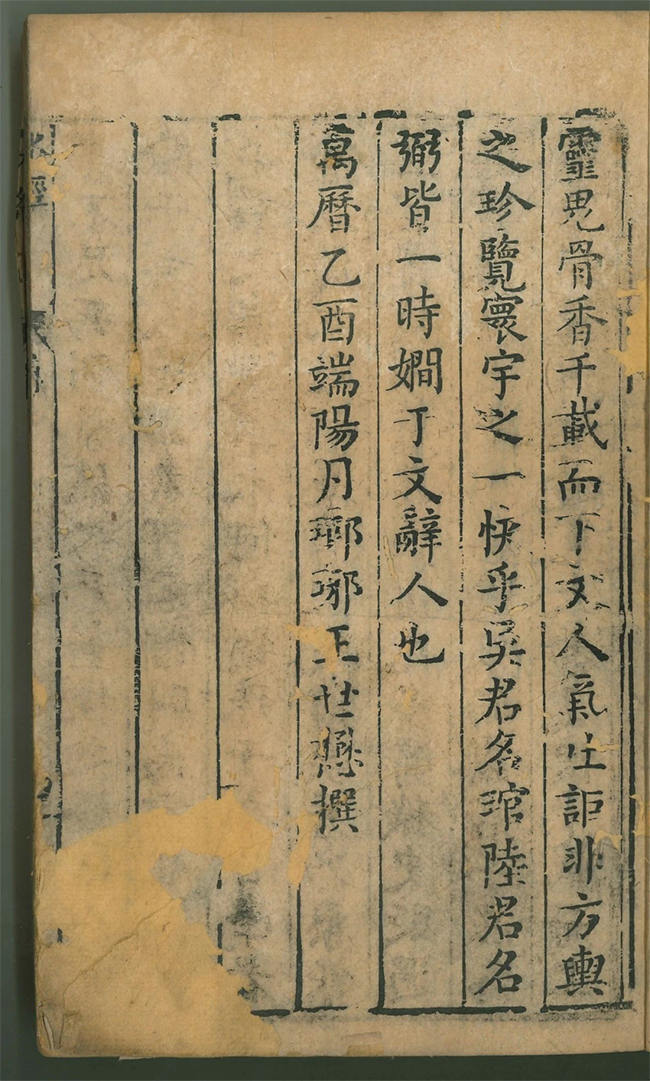 靈鬼骨香千載而下文人氣吐詎非方輿
之珍覽寰宇之一快乎吳君名琯陸君名
弼皆一時嫺于文辭人也
萬曆乙酉端陽月瑯琊王世懋撰
水經